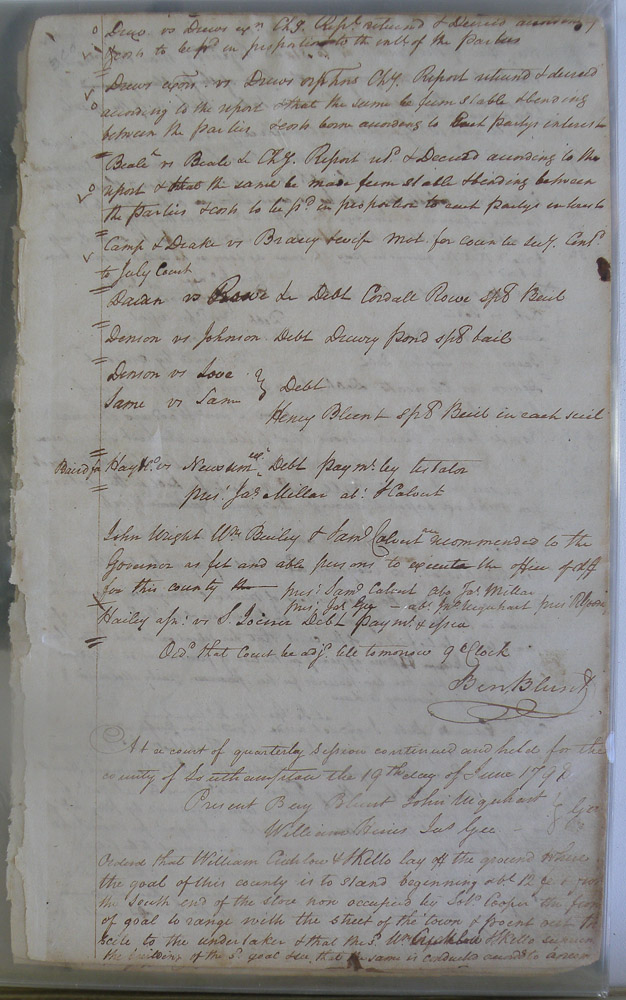 Drew vs Drews exn Chy. Report returned & Decreed according
& costs to be pd in proportion to the intr. of the Parties
Drews exors. vs Drews orphans Chy. Report returned & decreed
according to the report & that the same be firm stable & binding
between the parties & costs born according to Each partys interest
Beale vs Beale &c Chy. Report retd. & Decreed according to the
report & that the same be made firm stable & binding between
the Parties & costs to be pd in proportion to each partys interest
Camp & Drake vs Bracy & wife Mot. for counter secy. Contd.
to July Court
vs Rowe &c Debt Cordall Rowe sp8 Bail
Denson vs Johnson Debt Drewry Pond sp8 bail
Denson vs Love } Debt
Same vs Same
Henry Blunt sp8 Bail in each suit
Hay &c vs Newsum ex. Debt paymt. by testator
prest. Jas. Millar abt. S Calvert
John Wright Wm. Bailey & Saml. Calvert recommended to the
Governor as fit and able persons to execute the office of Shff
for this county prest. Saml Calvert abt. Jas. Millar
prest. Jas. Gee – abt. Jno. Urquhart prest.
Hailey assee. vs S. Joiner Debt paymt. & issue
Ord. that Court be adjd. till tomorrow 9 oClock
Ben Blunt
At a court of quarterly session continued and held for the
county of Southampton the 19th day of June 179
Present Benj Blunt John Urquhart
William Hines Jas Gee } Gent
Ordered that William Crichlow & S Kello lay off the ground where
the goal of this county is to stand beginning abt. 12 feet from
the South end of the store now occupied by Cooper the front
of goal to range with the street of the town & point out the
scite to the undertaker & that the sd. Wm Crichlow & S Kello superin
the building of the sd. goal & see that the same is conducted accordg. to